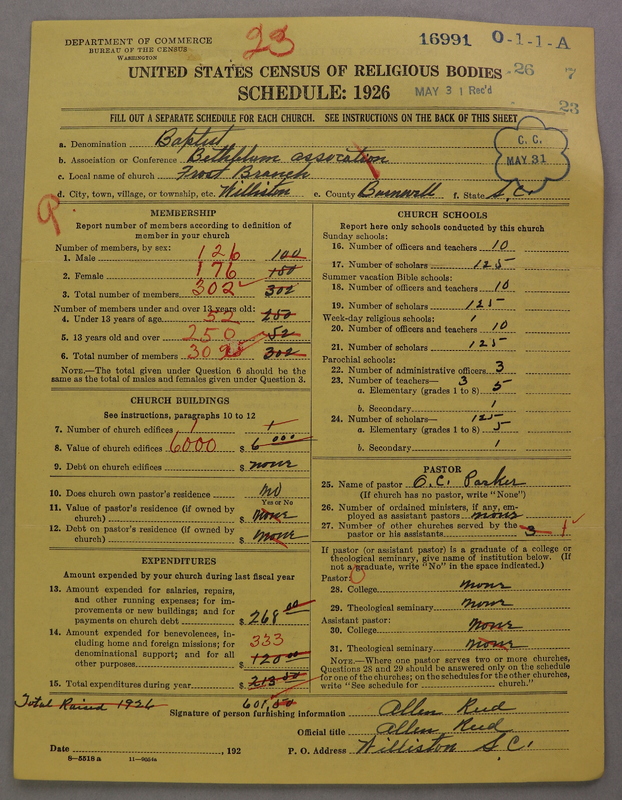 DEPARTMENT OF COMMERCE
BUREAU OF THE CENSUS
WASHINGTON
23
16991 O-1-1-A
UNITED STATES CENSUS OF RELIGIOUS BODIES
-26 7
SCHEDULE: 1926
MAY 31 Rec'd
23
FILL OUT A SEPARATE SCHEDULE FOR EACH CHURCH. SEE INSTRUCTIONS ON THE BACK OF THIS SHEET
C. C.
MAY 31
a. Denomination Baptist
b. Association or Conference Bethphum assocation
c. Local name of church Frost Branch
d. City, town, village, or township, etc. Williston e. County Barnwell f. State S.C.
MEMBERSHIP
Report number of members according to definition of member in your church
Number of members, by sex:
1. Male 126 100
2. Female 176 180
3. Total number of members 302 302
Number of members under and over 13 years old:
4. Under 13 years of age 52 250
5. 13 years old and over 250 52
6. Total number of members 302
NOTE.—The total given under Question 6 should be the same as the total of males and females given under Question 3.
CHURCH BUILDINGS
See instructions, paragraphs 10 to 12
7. Number of church edifices 1 1
8. Value of church edifices 6000 $ 6000
9. Debt on church edifices $ none
10. Does church own pastor's residence no
Yes or No
11. Value of pastor's residence (if owned by church) $ none
12. Debt on pastor's residence (if owned by church) $ none
EXPENDITURES
Amount expended by your church during last fiscal year
13. Amount expended for salaries, repairs, and other running expenses; for improvements or new buildings; and for payments on church debt $ 268 00
14. Amount expended for benevolences, including home and foreign missions; for denominational support; and for all other purposes 333 $ 120 00
15. Total expenditures during year $ 213 00
CHURCH SCHOOLS
Report here only schools conducted by this church
Sunday schools:
16. Number of officers and teachers 10
17. Number of scholars 125
Summer vacation Bible schools:
18. Number of officers and teachers 10
19. Number of scholars 125
Week-day religious schools: 1
20. Number of officers and teachers 10
21. Number of scholars 125
Parochial schools:
22. Number of administrative officers 3
23. Number of teachers— 3
a. Elementary (grades 1 to 8) 5
b. Secondary 1
24. Number of scholars— 125
a. Elementary (grades 1 to 8) 5
b. Secondary 1
PASTOR
25. Name of pastor C.C. Parker
(If church has no pastor, write "None")
26. Number of ordained ministers, if any, employed as assistant pastors none
27. Number of other churches served by the pastor or his assistants 3 1
If pastor (or assistant pastor) is a graduate of a college or theological seminary, give name of institution below. (If not a graduate, write "No" in the space indicated.)
Pastor: 0
28. College none
29. Theological seminary none
Assistant pastor:
30. College none
31. Theological seminary none
NOTE.—Where one pastor serves two or more churches, Questions 28 and 29 should be answered only on the schedule for one of the churches; on the schedules for the other churches, write "See schedule for ______ church."
Total Raised 1926 601,00
Signature of person furnishing information Allen Reed
Official title Allen Reed
Date ______, 192
P. O. Address Williston S.C.
8—5518 a 11—9654a